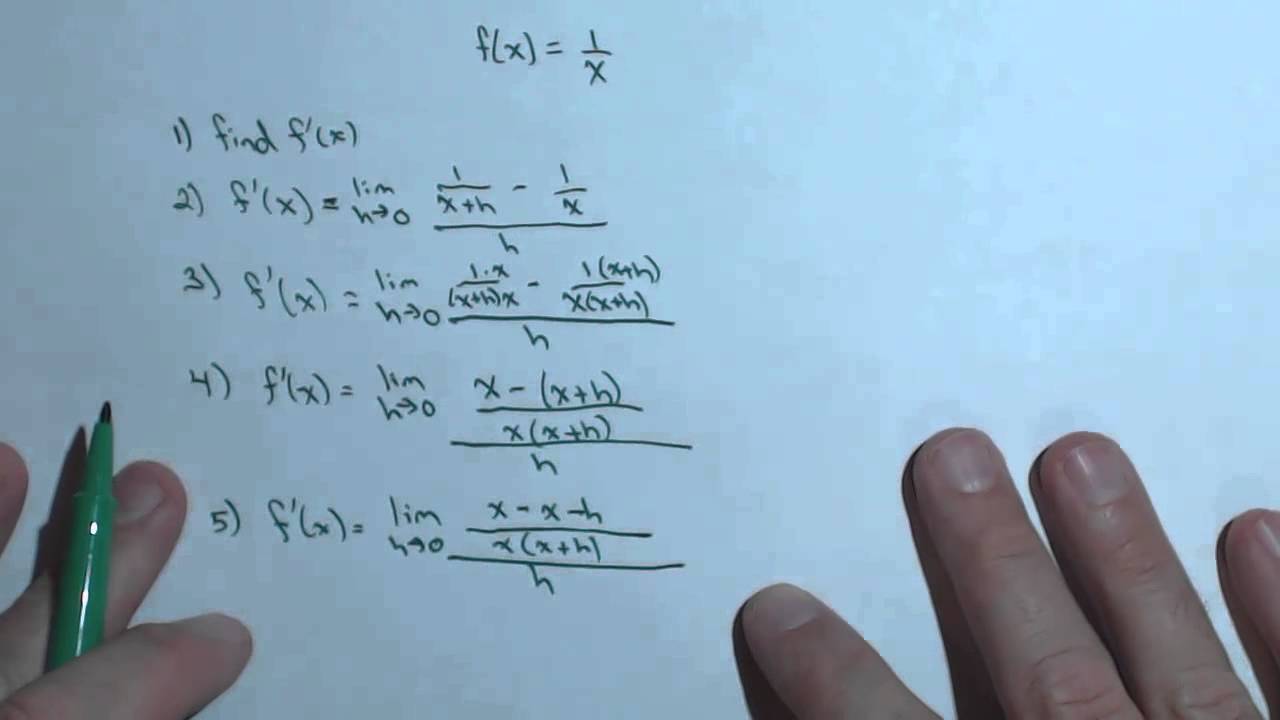 f(x) = 1/x
1) find f'(x)
2) f'(x) = lim h→0 (1/(x+h) - 1/x)/h
3) f'(x) = lim h→0 (1·x/((x+h)x) - 1(x+h)/(x(x+h)))/h
4) f'(x) = lim h→0 ((x - (x+h))/(x(x+h)))/h
5) f'(x) = lim h→0 ((x - x - h)/(x(x+h)))/h